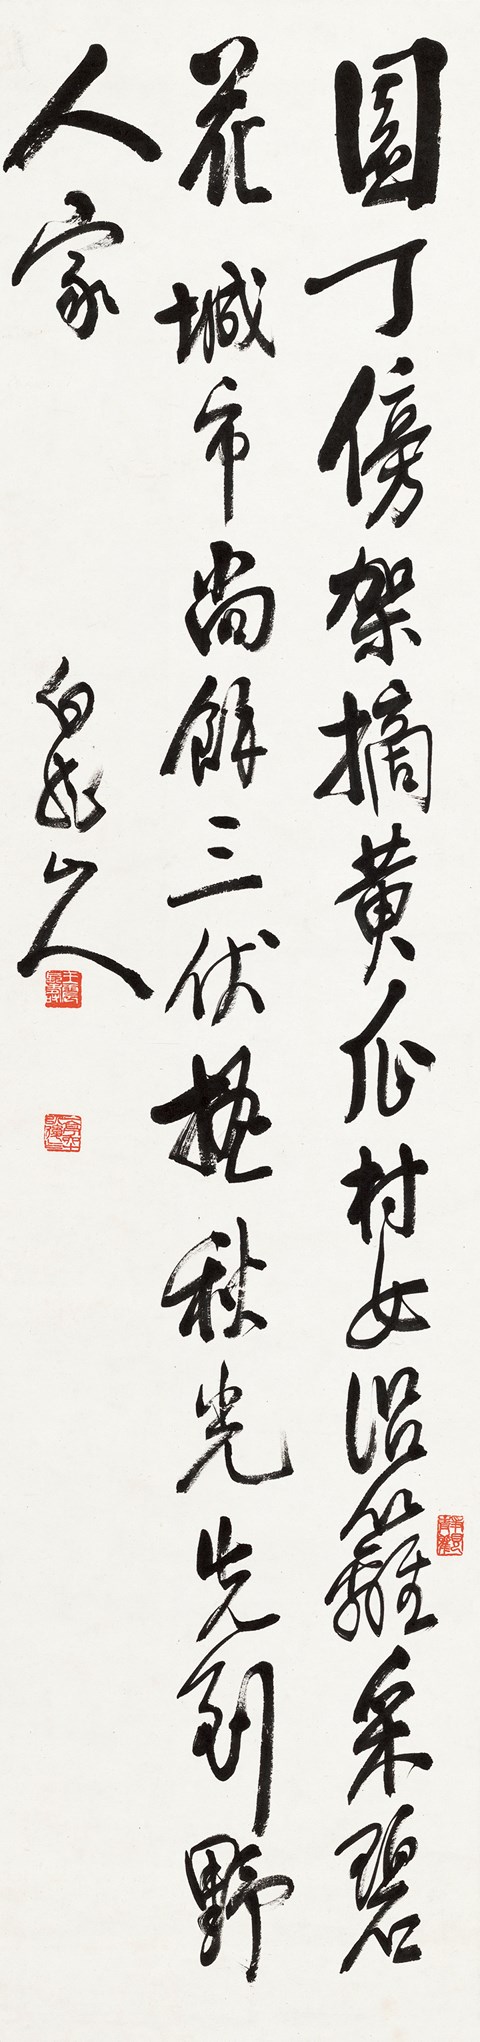 園丁傍架摘黃瓜村女沿籬采碧
花城市尚餘三伏𤍠秋光先到野
人家
白龍山人